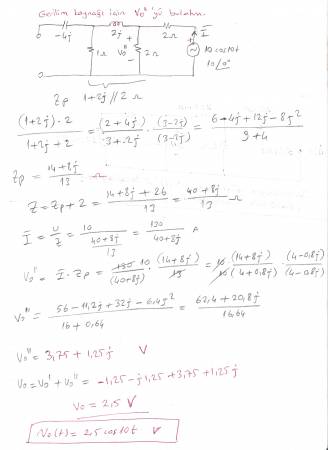 Gerilim kaynağı için Vo''yü bulalım.
-4j 2j 2Ω I
1Ω Vo'' + - 2Ω 10cos10t
10/0°
Zp 1+2j // 2 Ω
(1+2j)·2 / 1+2j+2 = (2+4j)/3+2j · (3-2j)/(3-2j) = 6-4j+12j-8j² / 9+4
Zp = 14+8j / 13 Ω
Z = Zp+2 = 14+8j+26 / 13 = 40+8j / 13 Ω
I = U/Z = 10 / (40+8j / 13) = 130 / 40+8j A
Vo'' = I·Zp = 130 10 / (40+8j) · (14+8j) / 13 = 10 (14+8j) / 10 (4+0,8j) · (4-0,8j) / (4-0,8j)
Vo'' = 56-11,2j+32j-6,4j² / 16+0,64 = 62,4+20,8j / 16,64
Vo'' = 3,75 + 1,25j V
Vo = Vo' + Vo'' = -1,25-j1,25+3,75+1,25j
Vo = 2,5 V
Vo(t) = 2,5 cos10t V